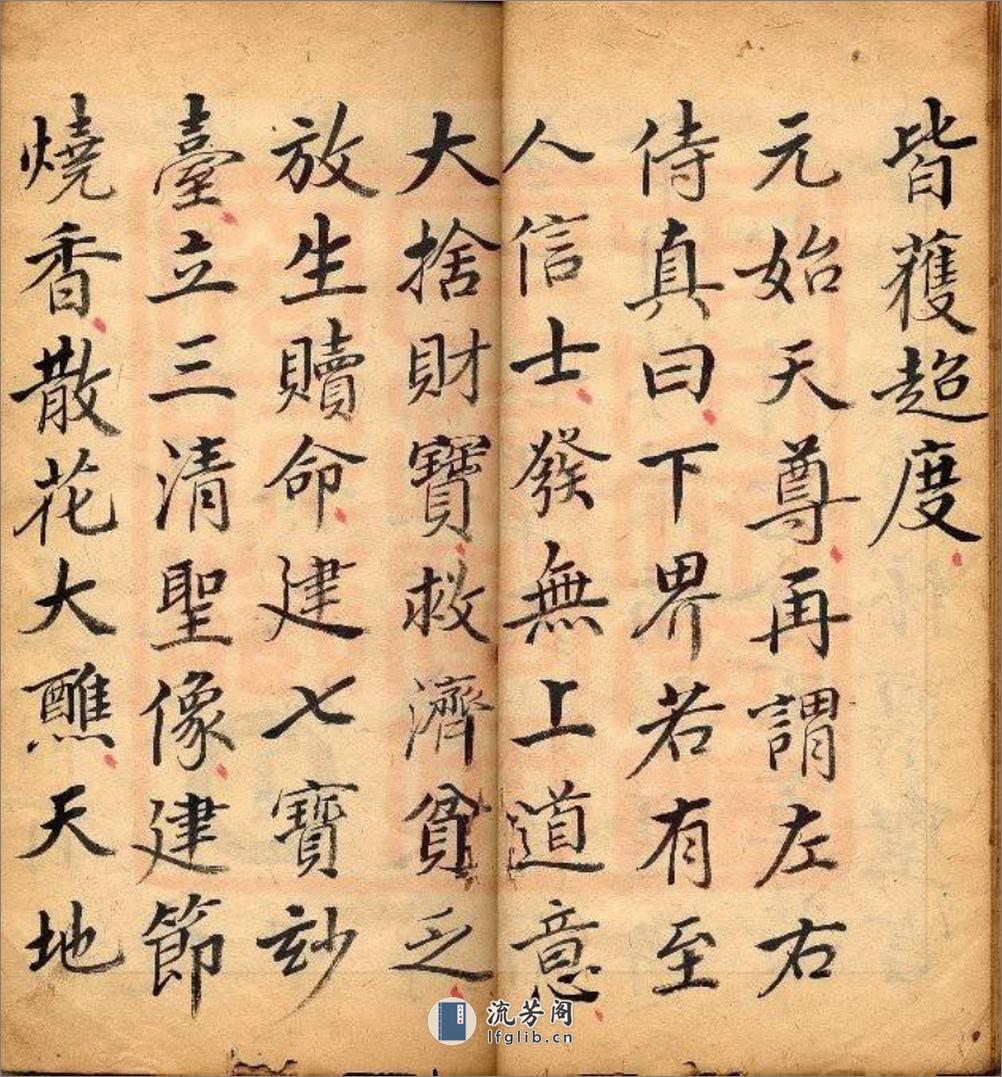 皆獲超度
元始天尊再謂左右
侍真曰下界若有至
人信士發無上道意
大捨財寶救濟貧乏
放生贖命建七寶玅
臺立三清聖像建節
燒香散花大醮天地
流芳阁
lfglib.cn